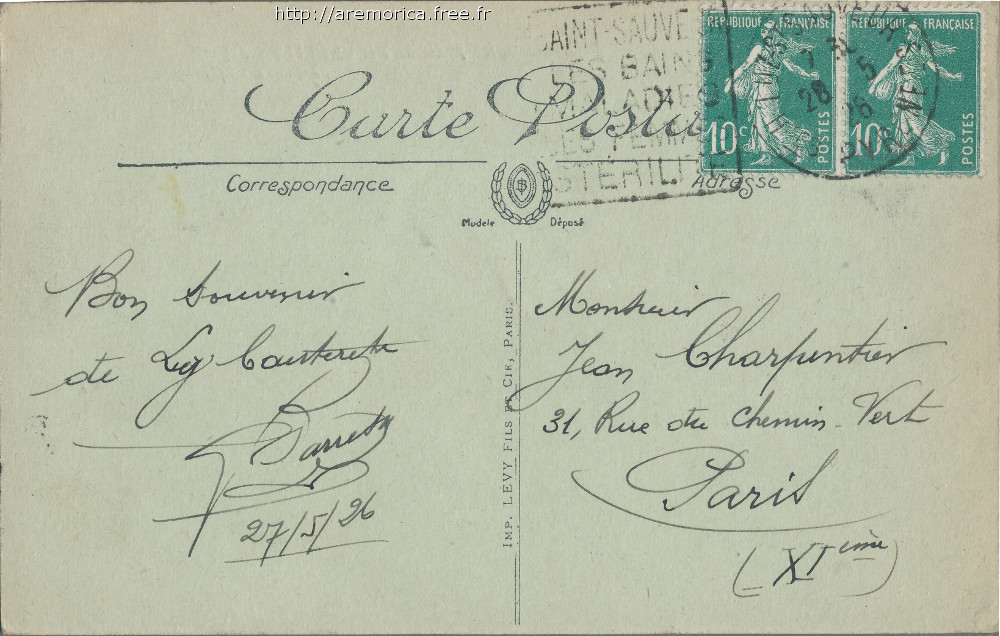 http://aremorica.free.fr
SAINT-SAUVE
LES BAINS
MALADIES
STÉRILITE
RÉPUBLIQUE FRANÇAISE
10c
POSTES
RÉPUBLIQUE FRANÇAISE
10c
POSTES
28 5
26
Carte Postale
Correspondance
Adresse
Modèle Déposé
Bon souvenir
de Cauterets
27/5/26
IMP. LÉVY FILS ET CIE, PARIS.
Monsieur
Jean Charpentier
31, Rue du Chemin-Vert
Paris
(XIème)